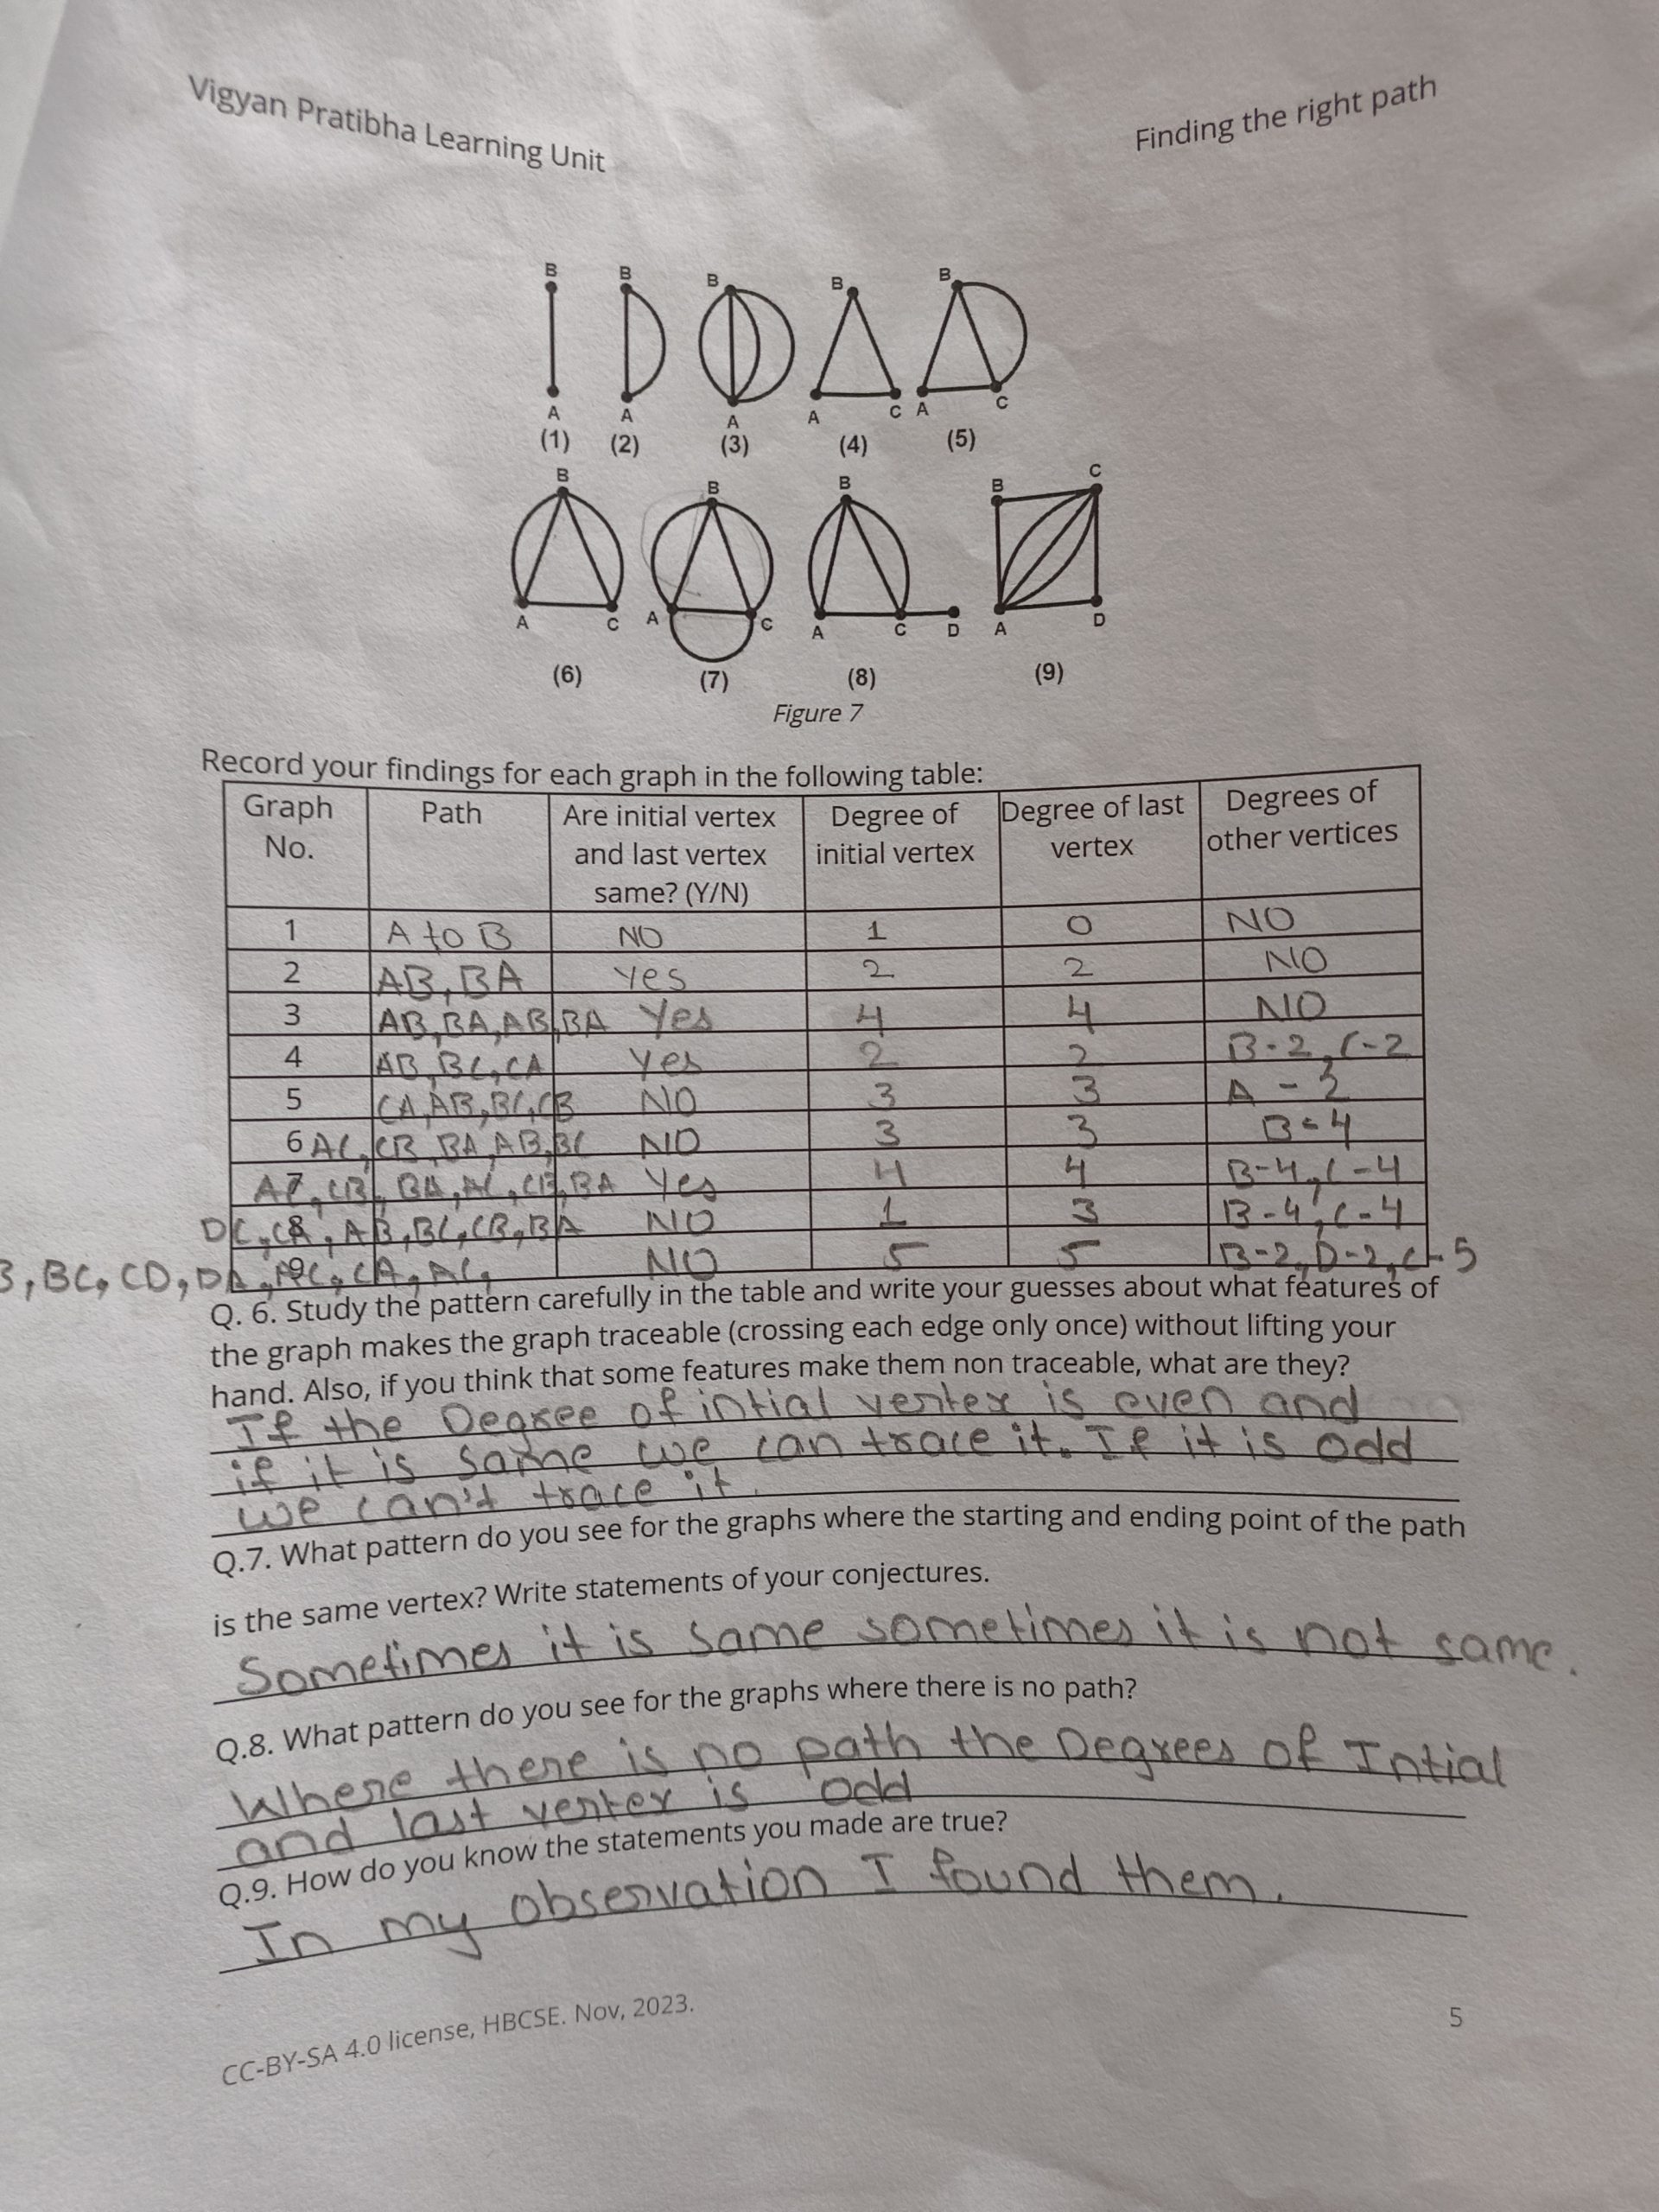 Vigyan Pratibha Learning Unit
Finding the right path
B B B B B
A A A A C A C
(1) (2) (3) (4) (5)
B B B B C
A C A C A C D A D
(6) (7) (8) (9)
Figure 7
Record your findings for each graph in the following table:
Graph No. Path Are initial vertex and last vertex same? (Y/N) Degree of initial vertex Degree of last vertex Degrees of other vertices
1 A to B NO 1 0 NO
2 AB, BA yes 2 2 NO
3 AB, BA, AB, BA Yes 4 4 NO
4 AB, BC, CA yes 2 2 B-2, C-2
5 CA, AB, BC, CB NO 3 3 A - 2
6 AC, CB, BA, AB, BC NO 3 3 B-4
7 AC, CB, BA, AC, CB, BA Yes 4 4 B-4, C-4
8 DC, CA, AB, BC, CB, BA NO 1 3 B-4, C-4
9 B, BC, CD, DA, AC, CA, AC, NO 5 5 B-2, D-2, C-5
Q. 6. Study the pattern carefully in the table and write your guesses about what features of
the graph makes the graph traceable (crossing each edge only once) without lifting your
hand. Also, if you think that some features make them non traceable, what are they?
If the Degree of intial vertex is even and
if it is same we can trace it. If it is odd
we can't trace it.
Q.7. What pattern do you see for the graphs where the starting and ending point of the path
is the same vertex? Write statements of your conjectures.
Sometimes it is same sometimes it is not same.
Q.8. What pattern do you see for the graphs where there is no path?
Where there is no path the Degrees of Intial
and last vertex is odd
Q.9. How do you know the statements you made are true?
In my observation I found them.
CC-BY-SA 4.0 license, HBCSE. Nov, 2023.
5